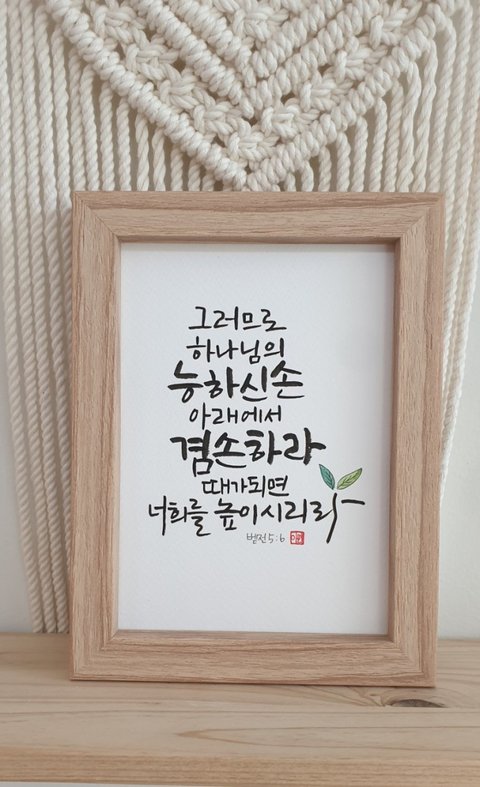 그러므로
하나님의
능하신손
아래에서
겸손하라
때가되면
너희를 높이시리라
벧전5:6